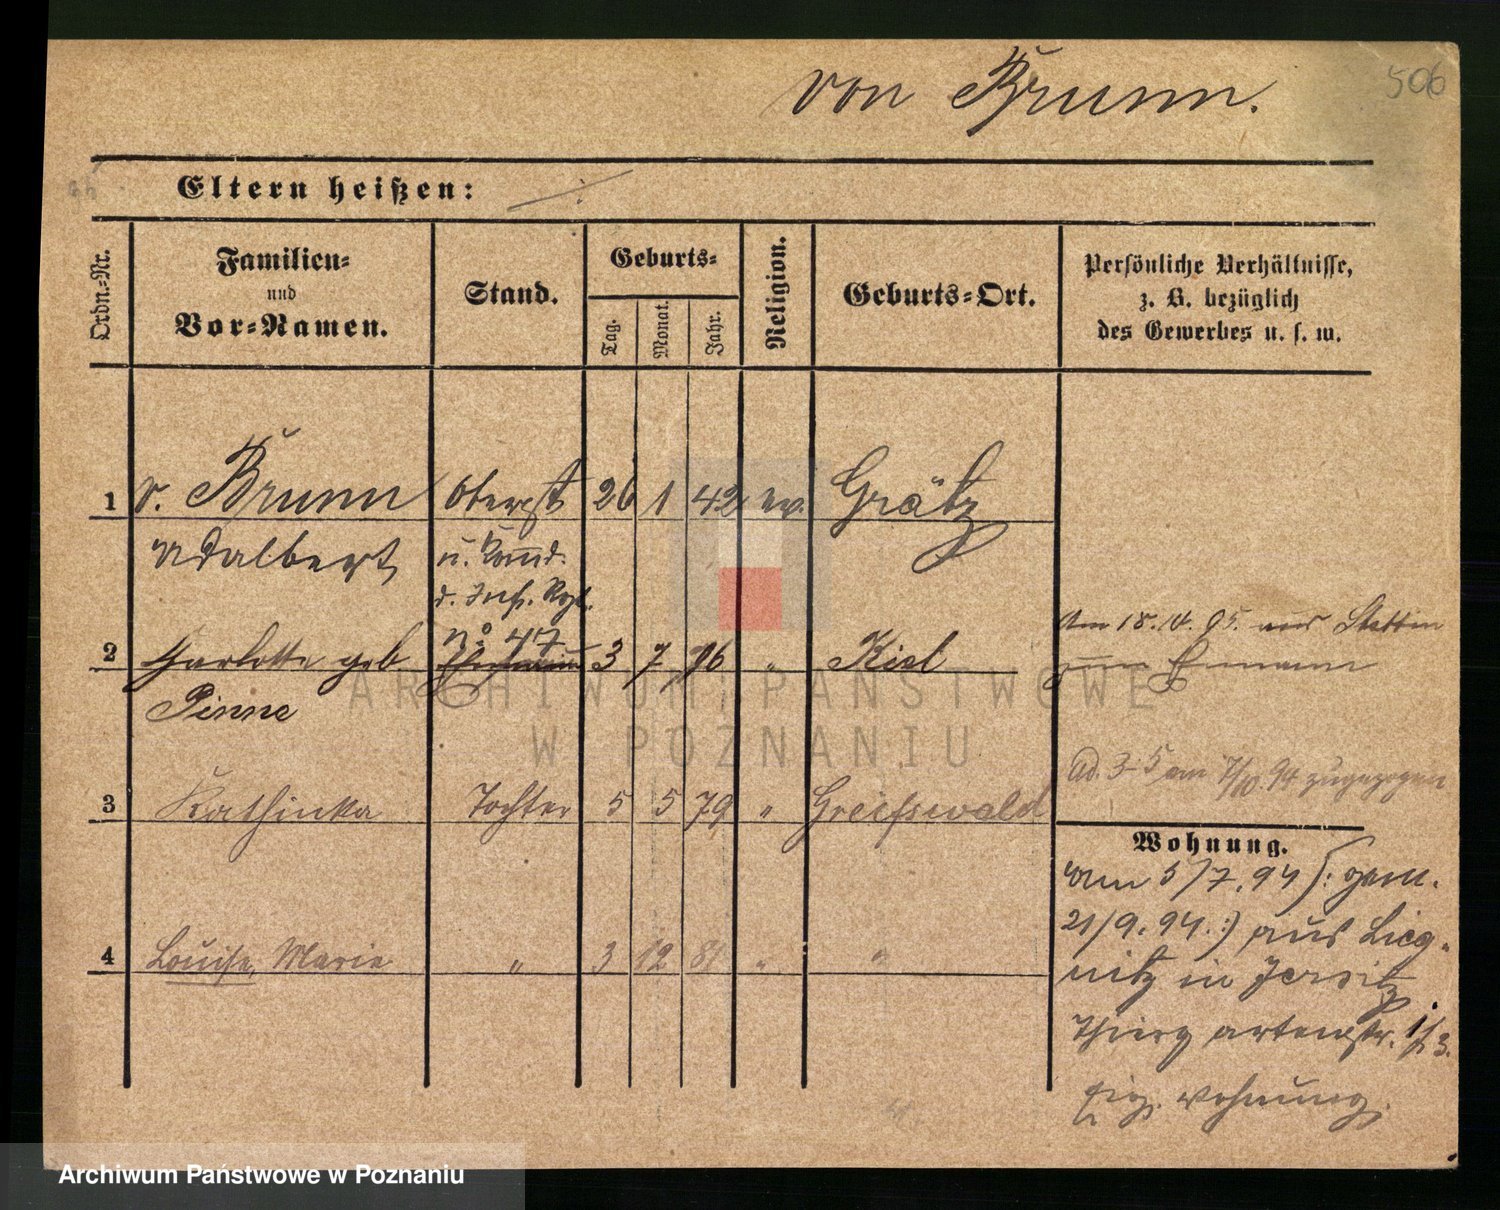 von Brunn.
506
Eltern heißen:
Ordn.-Nr.
Familien-
und
Vor-Namen.
Stand.
Geburts-
Tag.
Monat.
Jahr.
Religion.
Geburts-Ort.
Persönliche Verhältnisse,
z. B. bezüglich
des Gewerbes u. s. w.
1 v. Brunn Oberst 26 1 42 ev. Grätz
Adalbert u. Comd.
d. Inf. Rgt.
No 47
2 Charlotte geb 3 7 Kiel
Pinne
Am 18. 95. aus Stettin
3 Kathinka Tochter 5 5 79 " Greifswald
Ad. 3-5 am 7/10. 94 zugezogen
Wohnung.
4 Louise, Marie " 3 12 81 " "
am 5/7. 94 (: gem.
21/9. 94. :) aus Lieg-
nitz in Jersitz
Thiergartenstr. 1/3.
Eig. Wohnung.
ARCHIWUM PAŃSTWOWE
W POZNANIU
Archiwum Państwowe w Poznaniu